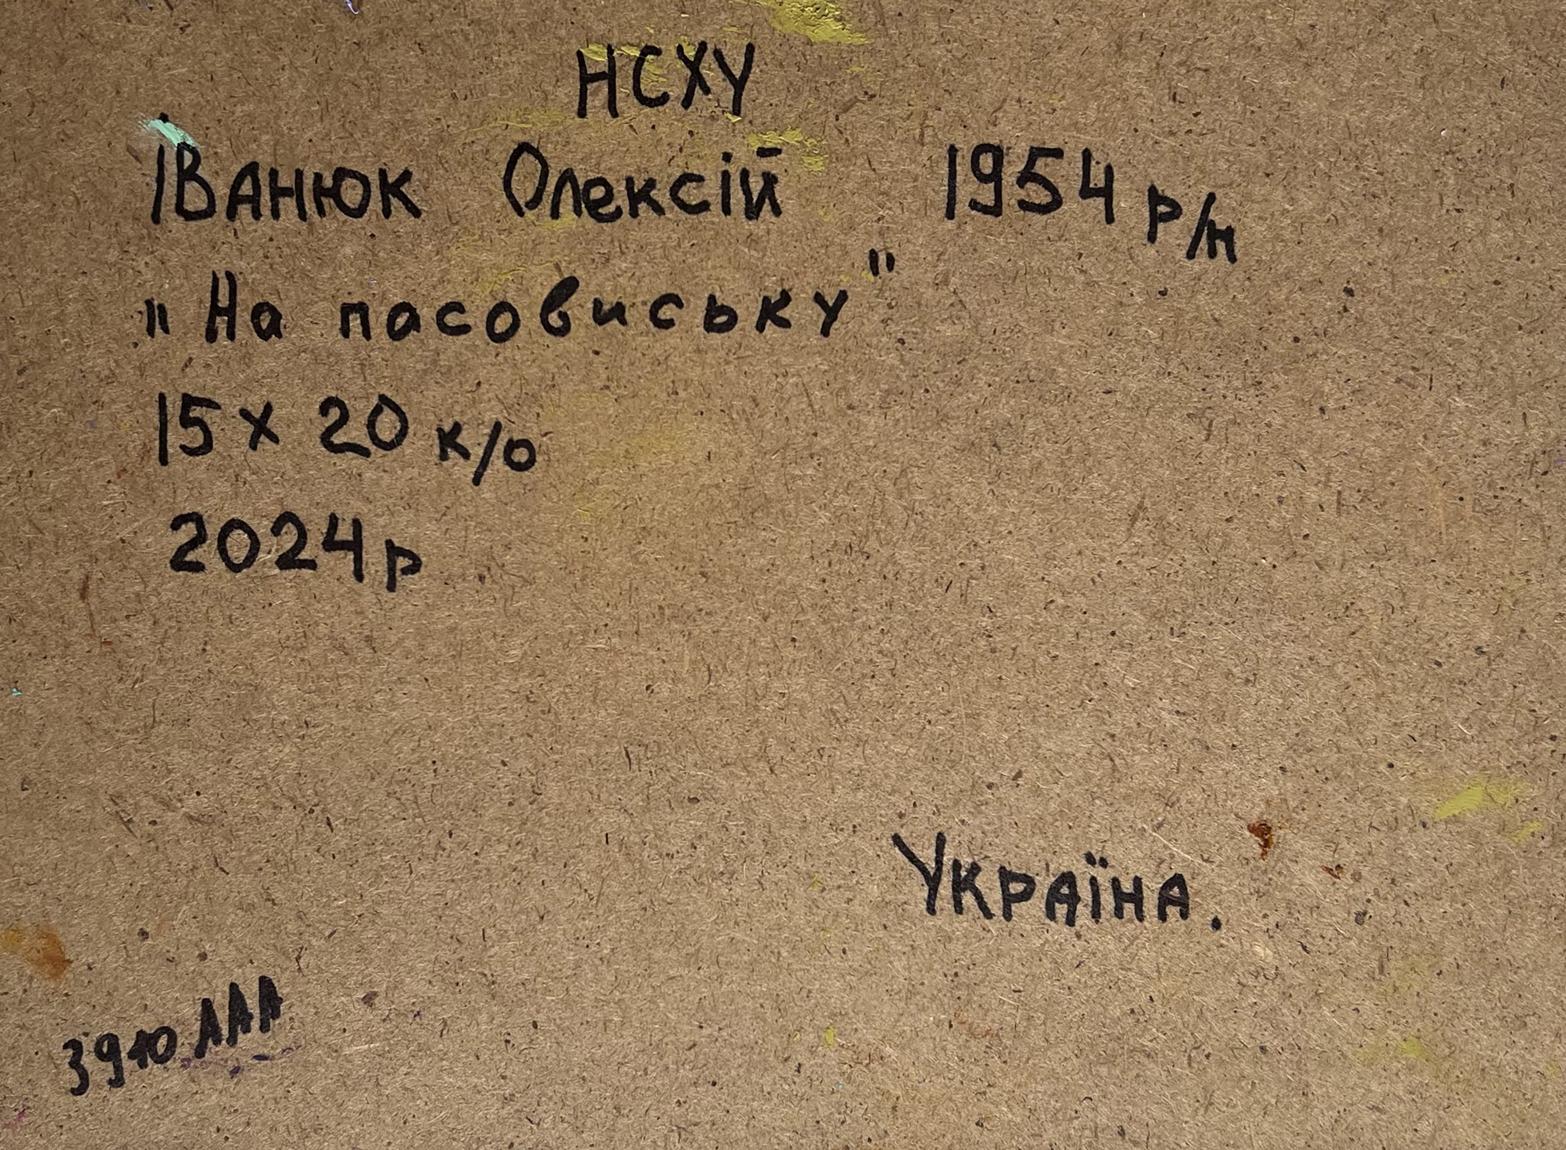 НСХУ
Іванюк Олексій 1954 р/н
"На пасовиську"
15х 20 к/о
2024р
Україна.
3910 ААА